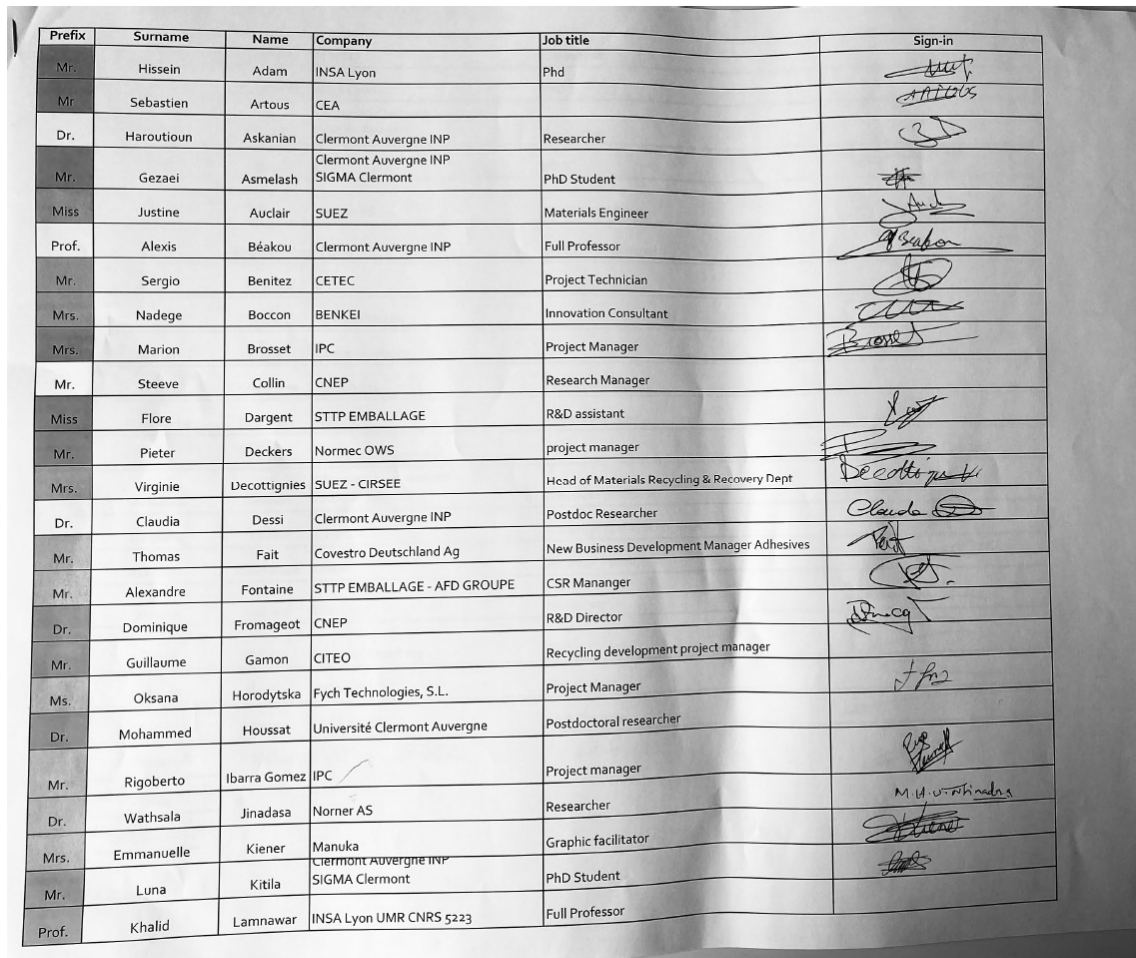 Prefix Surname Name Company Job title Sign-in
Mr. Hissein Adam INSA Lyon Phd
Mr Sebastien Artous CEA ARTOUS
Dr. Haroutioun Askanian Clermont Auvergne INP Researcher
Clermont Auvergne INP
Mr. Gezaei Asmelash SIGMA Clermont PhD Student
Miss Justine Auclair SUEZ Materials Engineer
Prof. Alexis Béakou Clermont Auvergne INP Full Professor Beakou
Mr. Sergio Benitez CETEC Project Technician
Mrs. Nadege Boccon BENKEI Innovation Consultant
Mrs. Marion Brosset IPC Project Manager Brosset
Mr. Steeve Collin CNEP Research Manager
Miss Flore Dargent STTP EMBALLAGE R&D assistant
Mr. Pieter Deckers Normec OWS project manager
Mrs. Virginie Decottignies SUEZ - CIRSEE Head of Materials Recycling & Recovery Dept
Dr. Claudia Dessi Clermont Auvergne INP Postdoc Researcher Claudia
Mr. Thomas Fait Covestro Deutschland Ag New Business Development Manager Adhesives
Mr. Alexandre Fontaine STTP EMBALLAGE - AFD GROUPE CSR Mananger
Dr. Dominique Fromageot CNEP R&D Director
Mr. Guillaume Gamon CITEO Recycling development project manager
Ms. Oksana Horodytska Fych Technologies, S.L. Project Manager
Dr. Mohammed Houssat Université Clermont Auvergne Postdoctoral researcher
Mr. Rigoberto Ibarra Gomez IPC Project manager
Dr. Wathsala Jinadasa Norner AS Researcher
Mrs. Emmanuelle Kiener Manuka Graphic facilitator Kiener
Clermont Auvergne INP
Mr. Luna Kitila SIGMA Clermont PhD Student
Prof. Khalid Lamnawar INSA Lyon UMR CNRS 5223 Full Professor